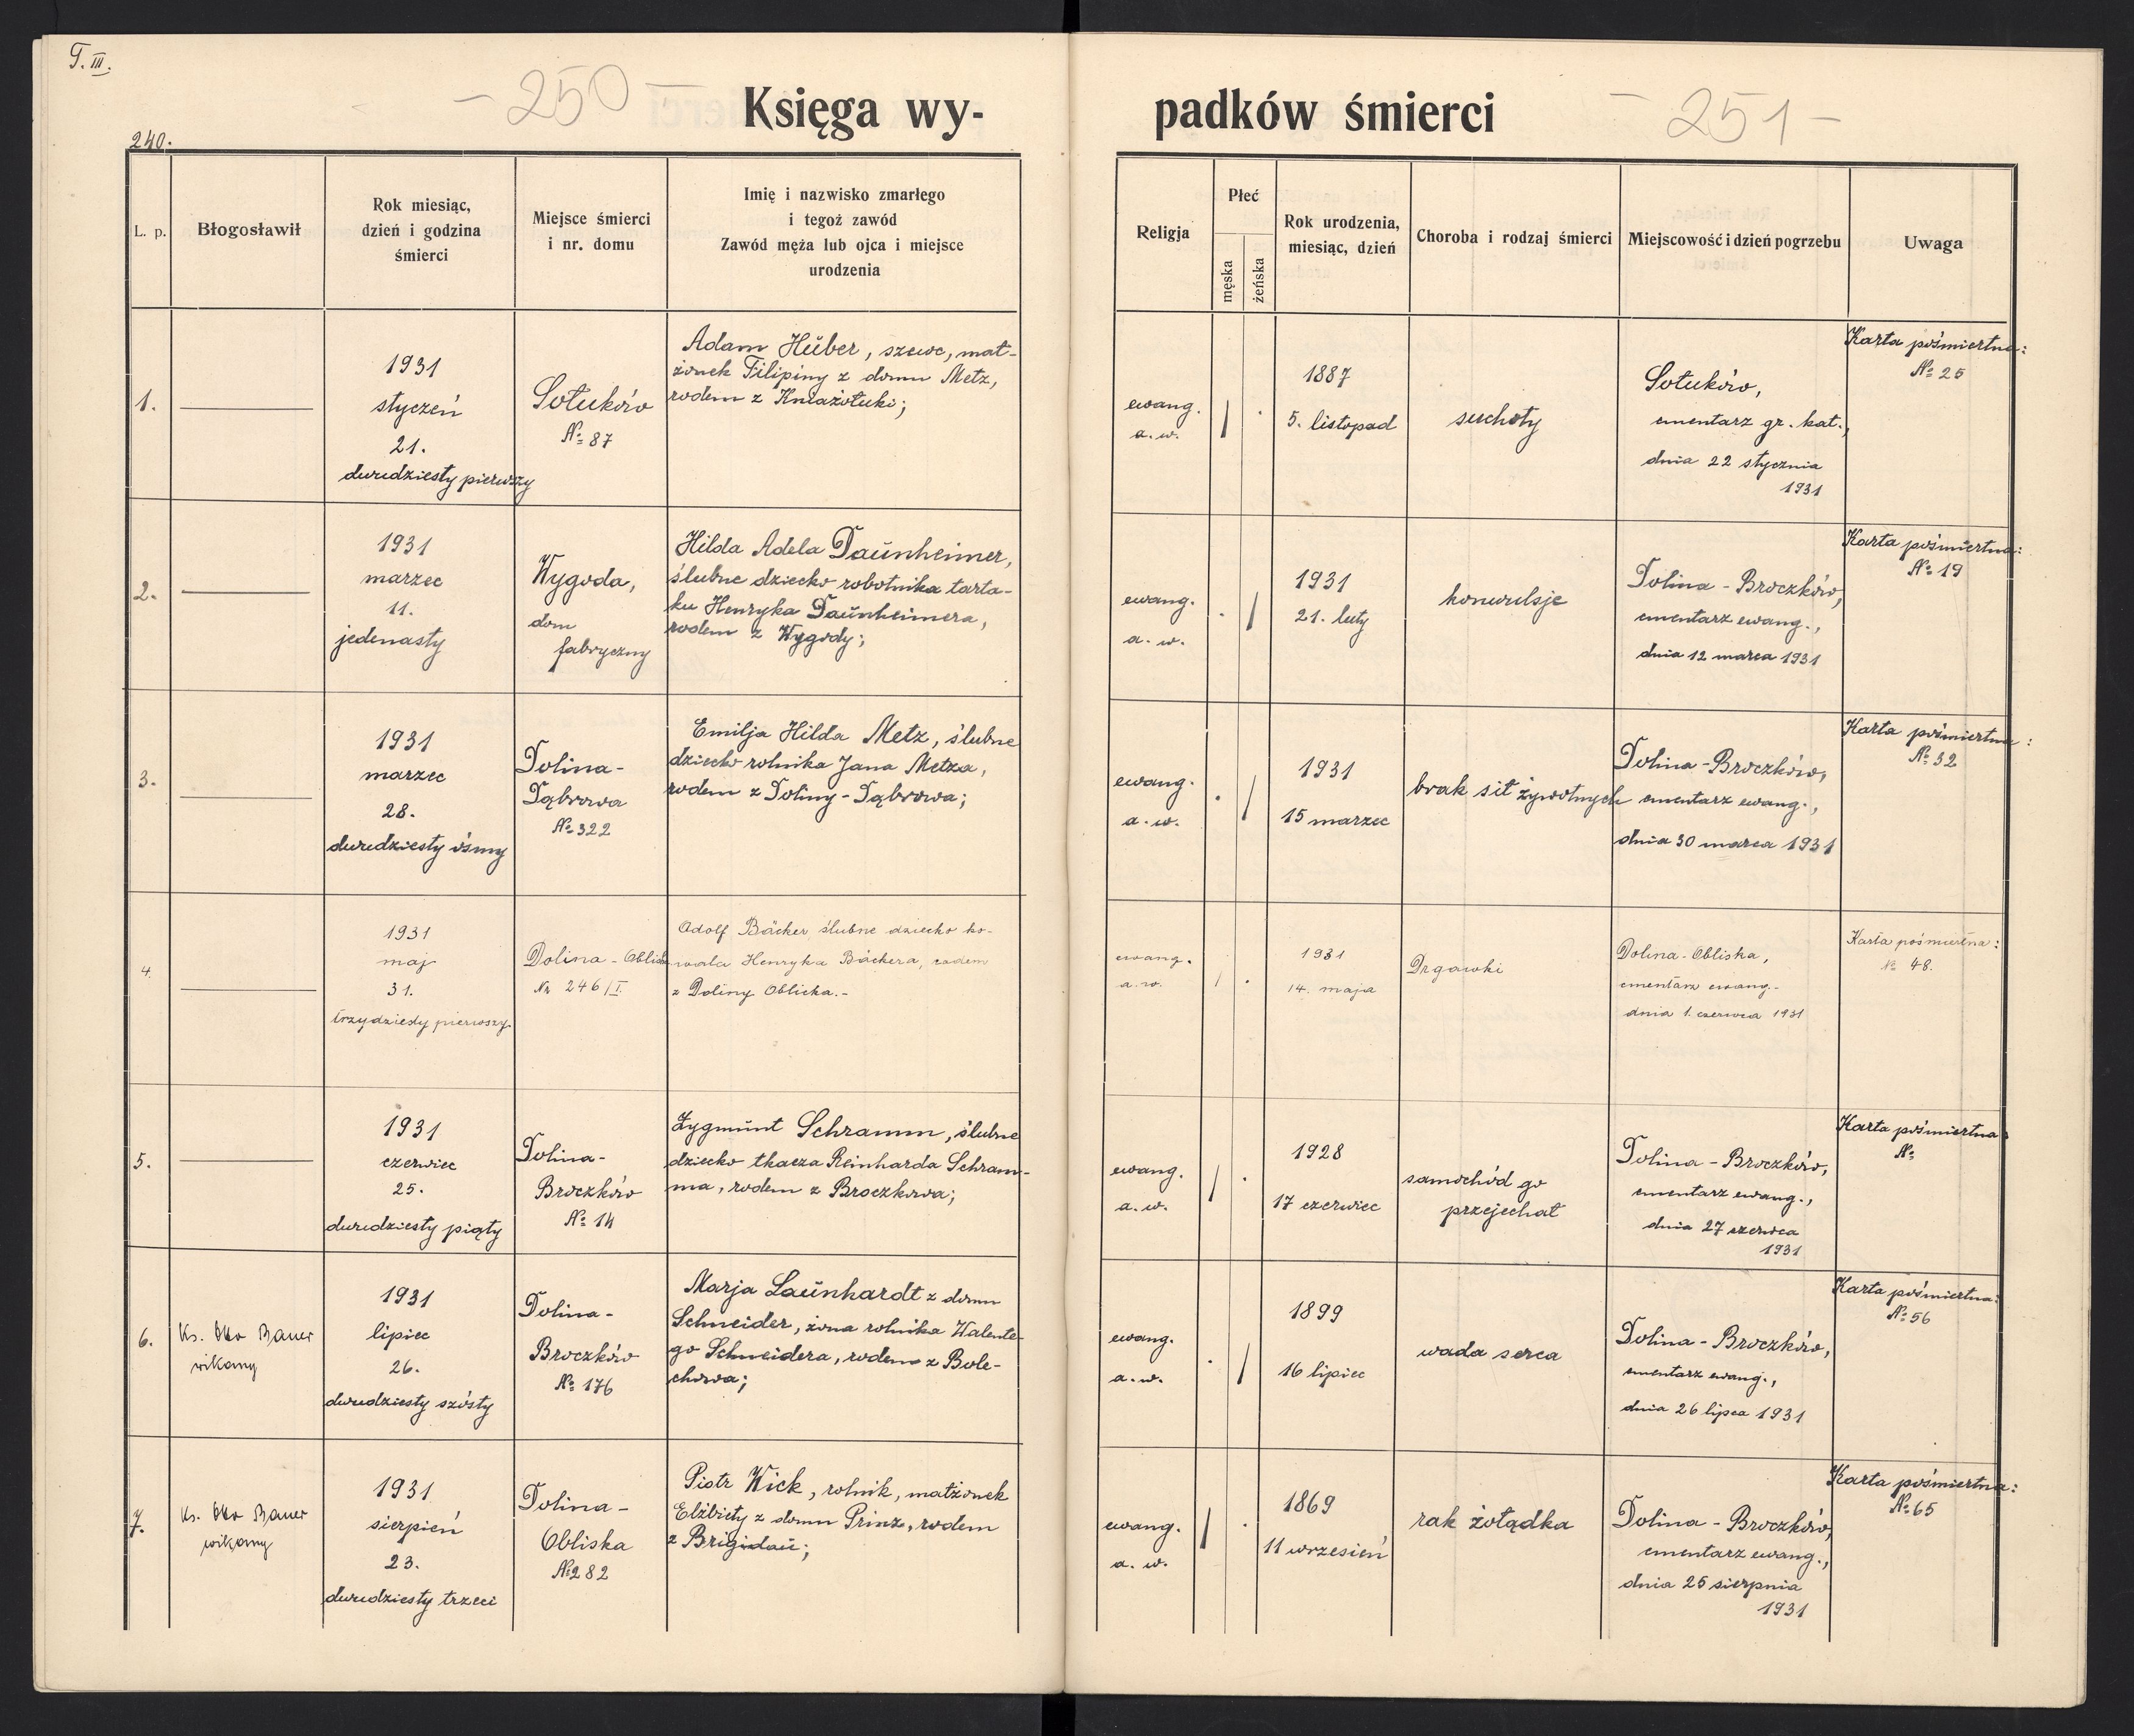 T. III.
- 250 -
Księga wy-
240.
L. p.
Błogosławił
Rok miesiąc,
dzień i godzina
śmierci
Miejsce śmierci
i nr. domu
Imię i nazwisko zmarłego
i tegoż zawód
Zawód męża lub ojca i miejsce
urodzenia
1.
1931
styczeń
21.
dwudziesty pierwszy
Sołuków
№ 87
Adam Hüber, szewc, mał-
żonek Filipiny z domu Metz,
rodem z Kniażołuki;
2.
1931
marzec
11.
jedenasty
Wygoda,
dom
fabryczny
Hilda Adela Daŭnheimer,
ślubne dziecko robotnika tarta-
ku Henryka Daŭnheimera,
rodem z Wygody;
3.
1931
marzec
28.
dwudziesty ósmy
Dolina-
Dąbrowa
№ 322
Emilja Hilda Metz, ślubne
dziecko rolnika Jana Metza,
rodem z Doliny-Dąbrowa;
4.
1931
maj
31.
trzydziesty pierwszy.
Dolina - Obliska
Nr. 246/I.
Adolf Bäcker ślubne dziecko ko-
wala Henryka Bäckera, rodem
z Doliny Oblicka.-
5.
1931
czerwiec
25.
dwudziesty piąty
Dolina-
Broczków
№ 14
Zygmŭnt Schramm, ślubne
dziecko tkacza Reinharda Schram-
ma, rodem z Broczkowa;
6.
Ks. Otto Bauer
wikary
1931
lipiec
26.
dwudziesty szósty
Dolina-
Broczków
№ 176
Marja Laŭnhardt z domu
Schneider, żona rolnika Walente-
go Schneidera, rodem z Bole-
chowa;
7.
Ks. Otto Bauer
wikary
1931
sierpień
23.
dwudziesty trzeci
Dolina-
Obliska
№ 282
Piotr Wick, rolnik, małżonek
Elżbiety z domu Prinz, rodem
z
padków śmierci
- 251 -
Religja
Płeć
męska
żeńska
Rok urodzenia,
miesiąc, dzień
Choroba i rodzaj śmierci
Miejscowość i dzień pogrzebu
Uwaga
ewang.
a. w.
1887
5. listopad
suchoty
Sołuków,
cmentarz gr. kat.,
dnia 22 stycznia
1931
Karta pośmiertna:
№ 25
ewang.
a. w.
1931
21. luty
konwulsje
Dolina - Broczków,
cmentarz ewang.,
dnia 12 marca 1931
Karta pośmiertna:
№ 19
ewang.
a. w.
1931
15 marzec
brak sił żywotnych
Dolina - Broczków,
cmentarz ewang.,
dnia 30 marca 1931
Karta pośmiertna:
№ 32
ewang.
a. w.
1931
14. maja
Drgawki
Dolina - Obliska,
cmentarz ewang.-
dnia 1. czerwca 1931
Karta pośmiertna:
№ 48.
ewang.
a. w.
1928
17 czerwiec
samochód go
przejechał
Dolina - Broczków,
cmentarz ewang.,
dnia 27 czerwca
1931
Karta pośmiertna:
№
ewang.
a. w.
1899
16 lipiec
wada serca
Dolina - Broczków,
cmentarz ewang.,
dnia 26 lipca 1931
Karta pośmiertna:
№ 56
ewang.
a. w.
1869
11 wrzesień
rak żołądka
Dolina - Broczków,
cmentarz ewang.,
dnia 25 sierpnia
1931
Karta pośmiertna:
№ 65